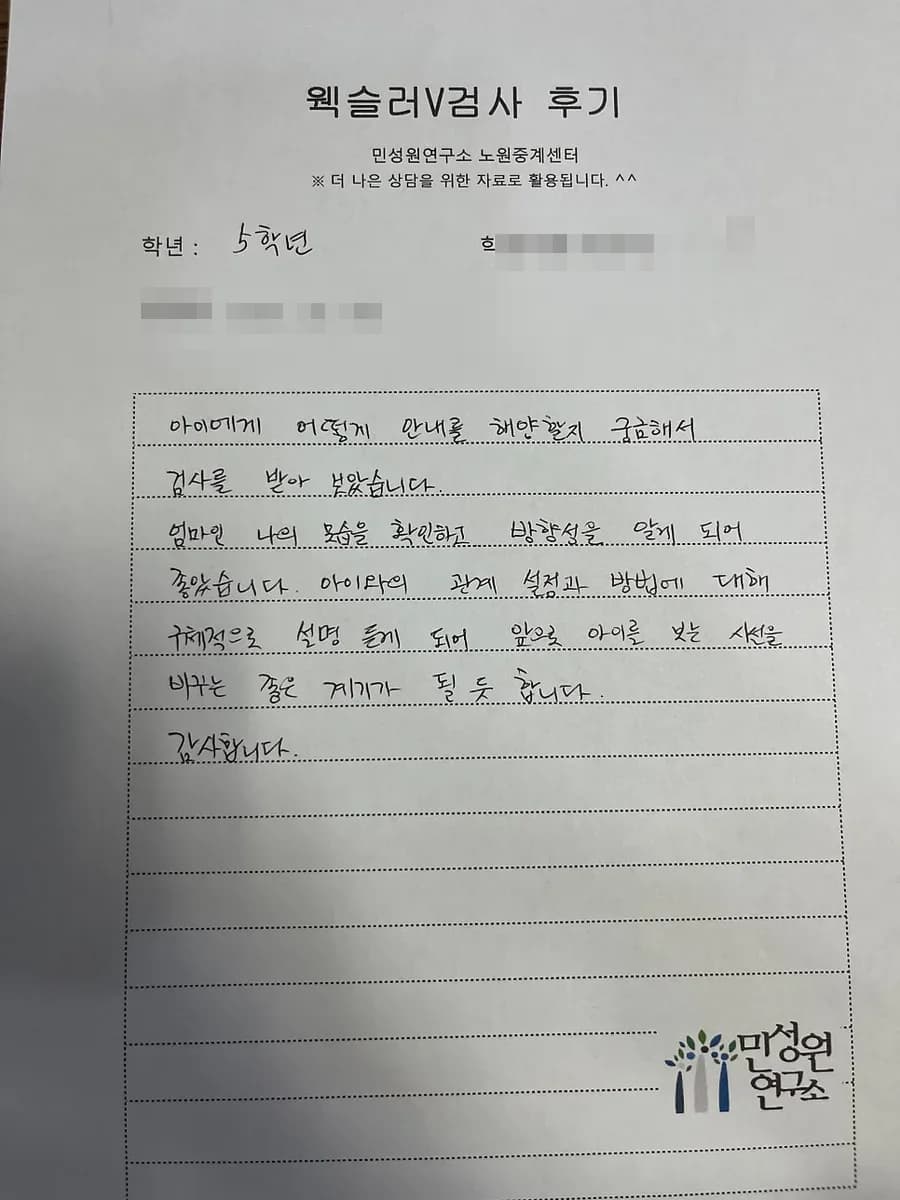 웩슬러V검사 후기
민성원연구소 노원중계센터
※ 더 나은 상담을 위한 자료로 활용됩니다. ^^
학년 : 5학년
아이에게 어떻게 안내를 해야할지 궁금해서
검사를 받아 보았습니다.
엄마인 나의 모습을 확인하고 방향성을 알게 되어
좋았습니다. 아이와의 관계 설정과 방법에 대해
구체적으로 설명 듣게 되어 앞으로 아이를 보는 시선을
바꾸는 좋은 계기가 될 듯 합니다.
감사합니다.
민성원
연구소